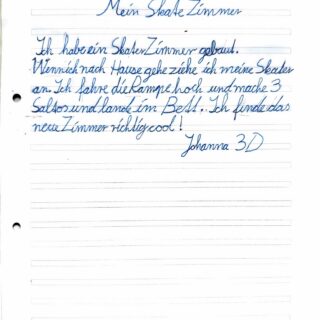 Mein Skate Zimmer
Ich habe ein Skater Zimmer gebaut.
Wenn ich nach Hause gehe ziehe ich meine Skater
an. Ich fahre die Rampe hoch und mache 3
Saltos und lande im Bett. Ich finde das
neue Zimmer richtig cool!
Johanna 3D